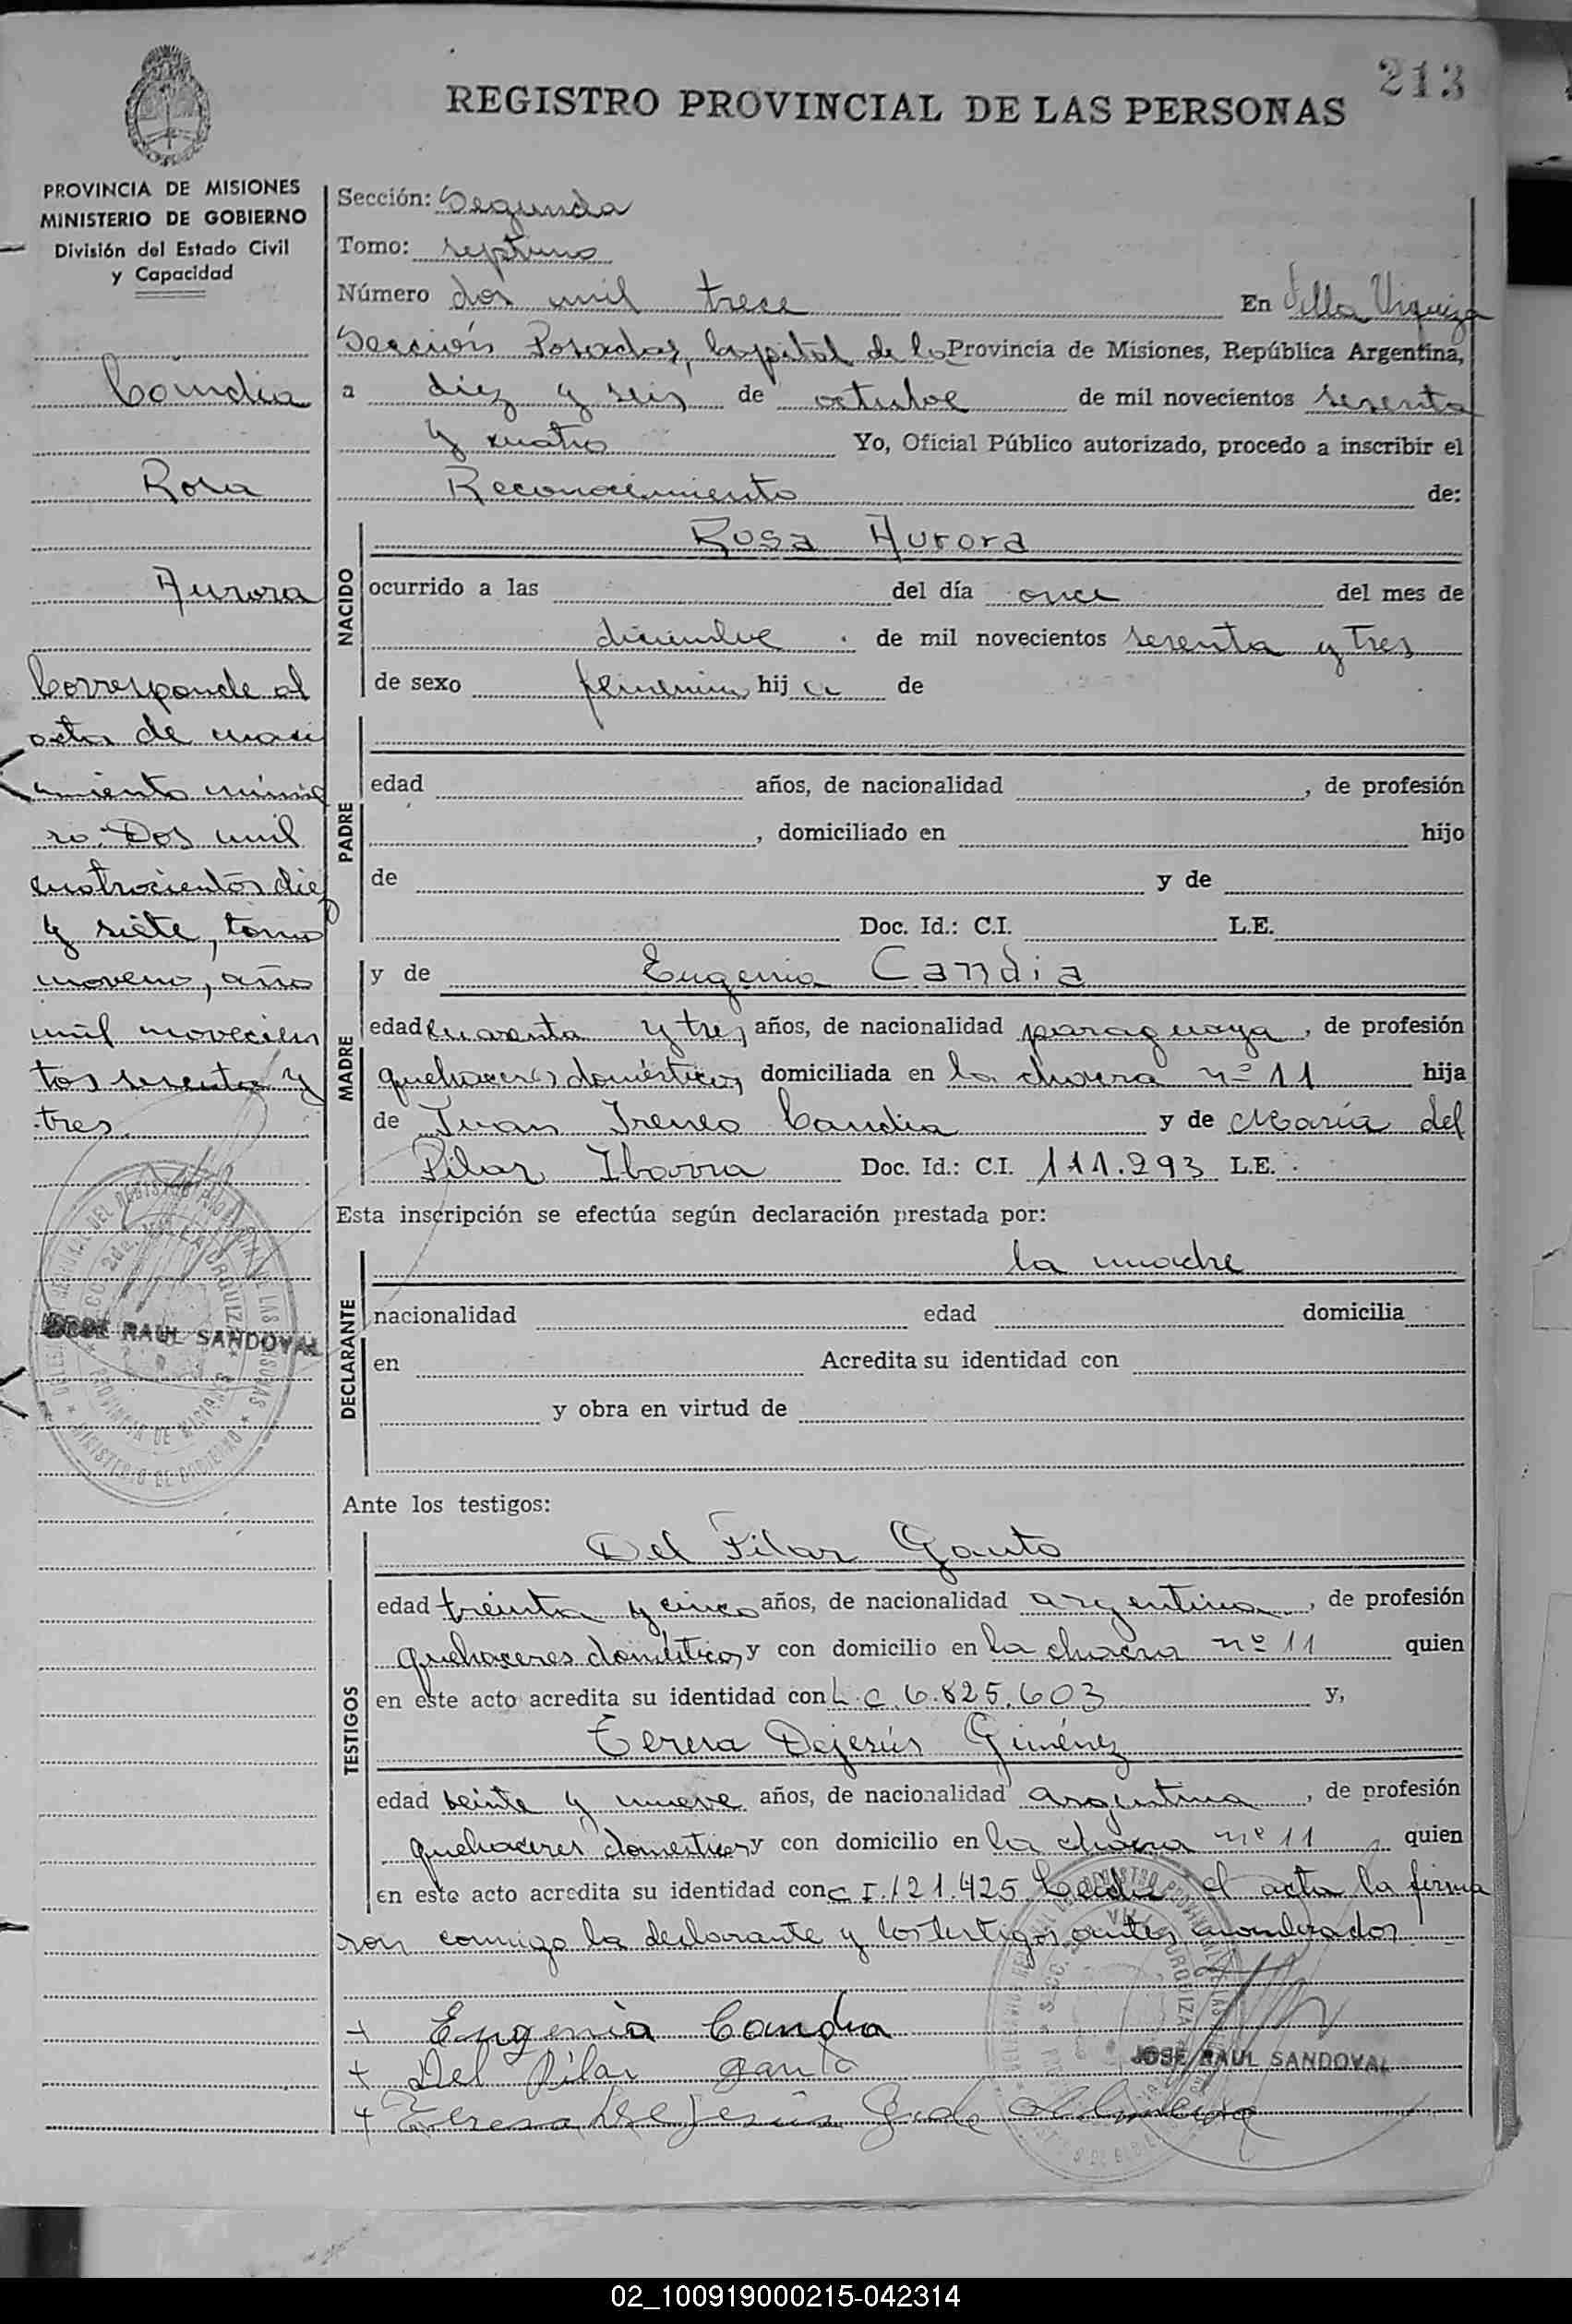 213
REGISTRO PROVINCIAL DE LAS PERSONAS
PROVINCIA DE MISIONES
MINISTERIO DE GOBIERNO
División del Estado Civil
y Capacidad
Candia
Rosa
Aurora
Corresponde al
acta de naci
miento núme
ro: Dos mil
cuatrocientos diez
y siete, tomo
noveno, año
mil novecien
tos sesenta y
tres.
JOSE RAUL SANDOVAL
Sección: Segunda
Tomo: septimo
Número dos mil trece En Villa Urquiza
Sección Posadas, Capital de la Provincia de Misiones, República Argentina,
a diez y seis de octubre de mil novecientos sesenta
y cuatro Yo, Oficial Público autorizado, procedo a inscribir el
Reconocimiento de:
NACIDO
Rosa Aurora
ocurrido a las del día once del mes de
diciembre de mil novecientos sesenta y tres
de sexo femenino hija de
PADRE
edad años, de nacionalidad , de profesión
, domiciliado en hijo
de y de
Doc. Id.: C.I. L.E.
MADRE
y de Eugenia Candia
edad cuarenta y tres años, de nacionalidad paraguaya, de profesión
quehaceres domésticos, domiciliada en la chacra nº 11 hija
de Juan Ireneo Candia y de María del
Pilar Ibarra Doc. Id.: C.I. 111.293 L.E.
Esta inscripción se efectúa según declaración prestada por:
DECLARANTE
la madre
nacionalidad edad domicilia
en Acredita su identidad con
y obra en virtud de
Ante los testigos:
TESTIGOS
Del Pilar Gauto
edad treinta y cinco años, de nacionalidad argentina, de profesión
quehaceres domésticos y con domicilio en la chacra nº 11 quien
en este acto acredita su identidad con L.C 6.825.603 y,
Teresa Dejesús Giménez
edad beinte y nueve años, de nacionalidad argentina, de profesión
quehaceres domesticos y con domicilio en la chacra nº 11 quien
en este acto acredita su identidad con C I. 121.425 Leída el acta la firma
ron conmigo la declarante y los testigos antes nombrados
+ Eugenia Candia
+ Del Pilar Gauto
+ Teresa Dejesús
JOSE RAUL SANDOVAL
02_100919000215-042314